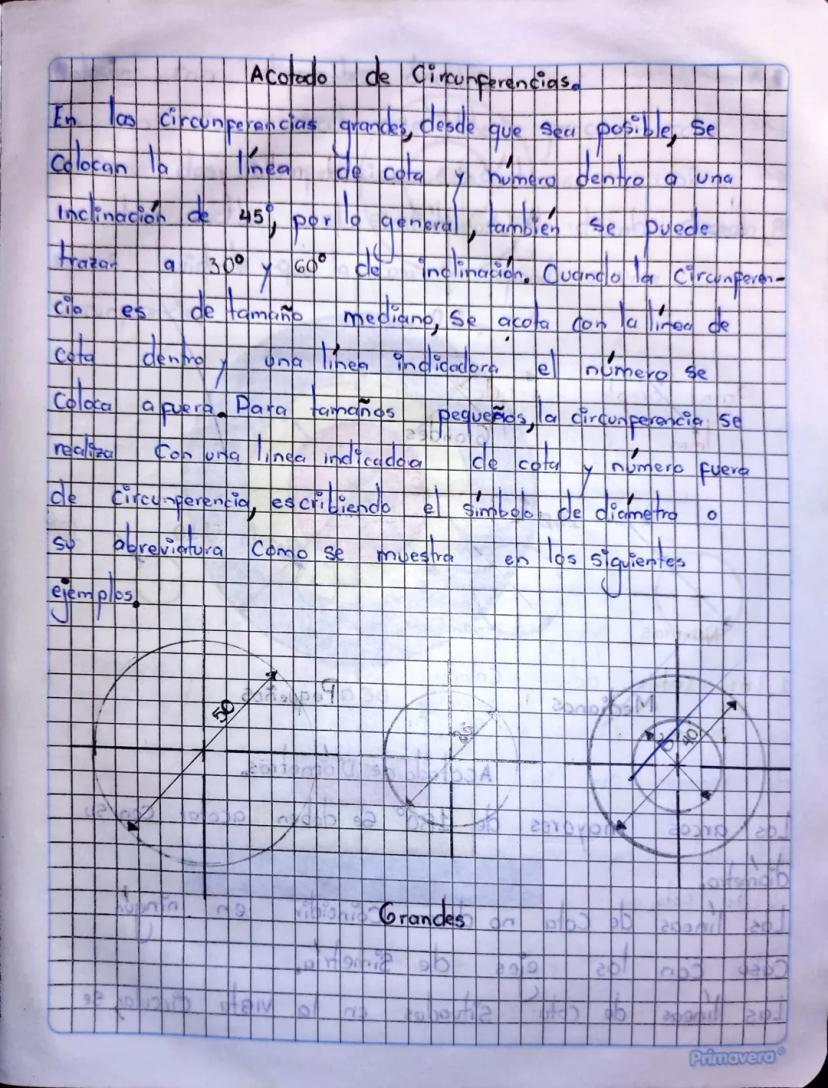 Acotado de Circunferencias.
En las circunferencias grandes, desde que sea posible, se
colocan la línea de cota y número dentro a una
inclinación de 45°, por lo general, también se puede
trazar a 30° y 60° de inclinación. Cuando la circunferen-
cia es de tamaño mediano, se acota con la línea de
cota dentro y una línea indicadora el número se
coloca afuera. Para tamaños pequeños, la circunferencia se
realiza con una linea indicadoa de cota y número fuera
de circunferencia, escribiendo el símbolo de diámetro o
su abreviatura como se muestra en los siguientes
ejemplos.
50
40
Grandes
Primavera